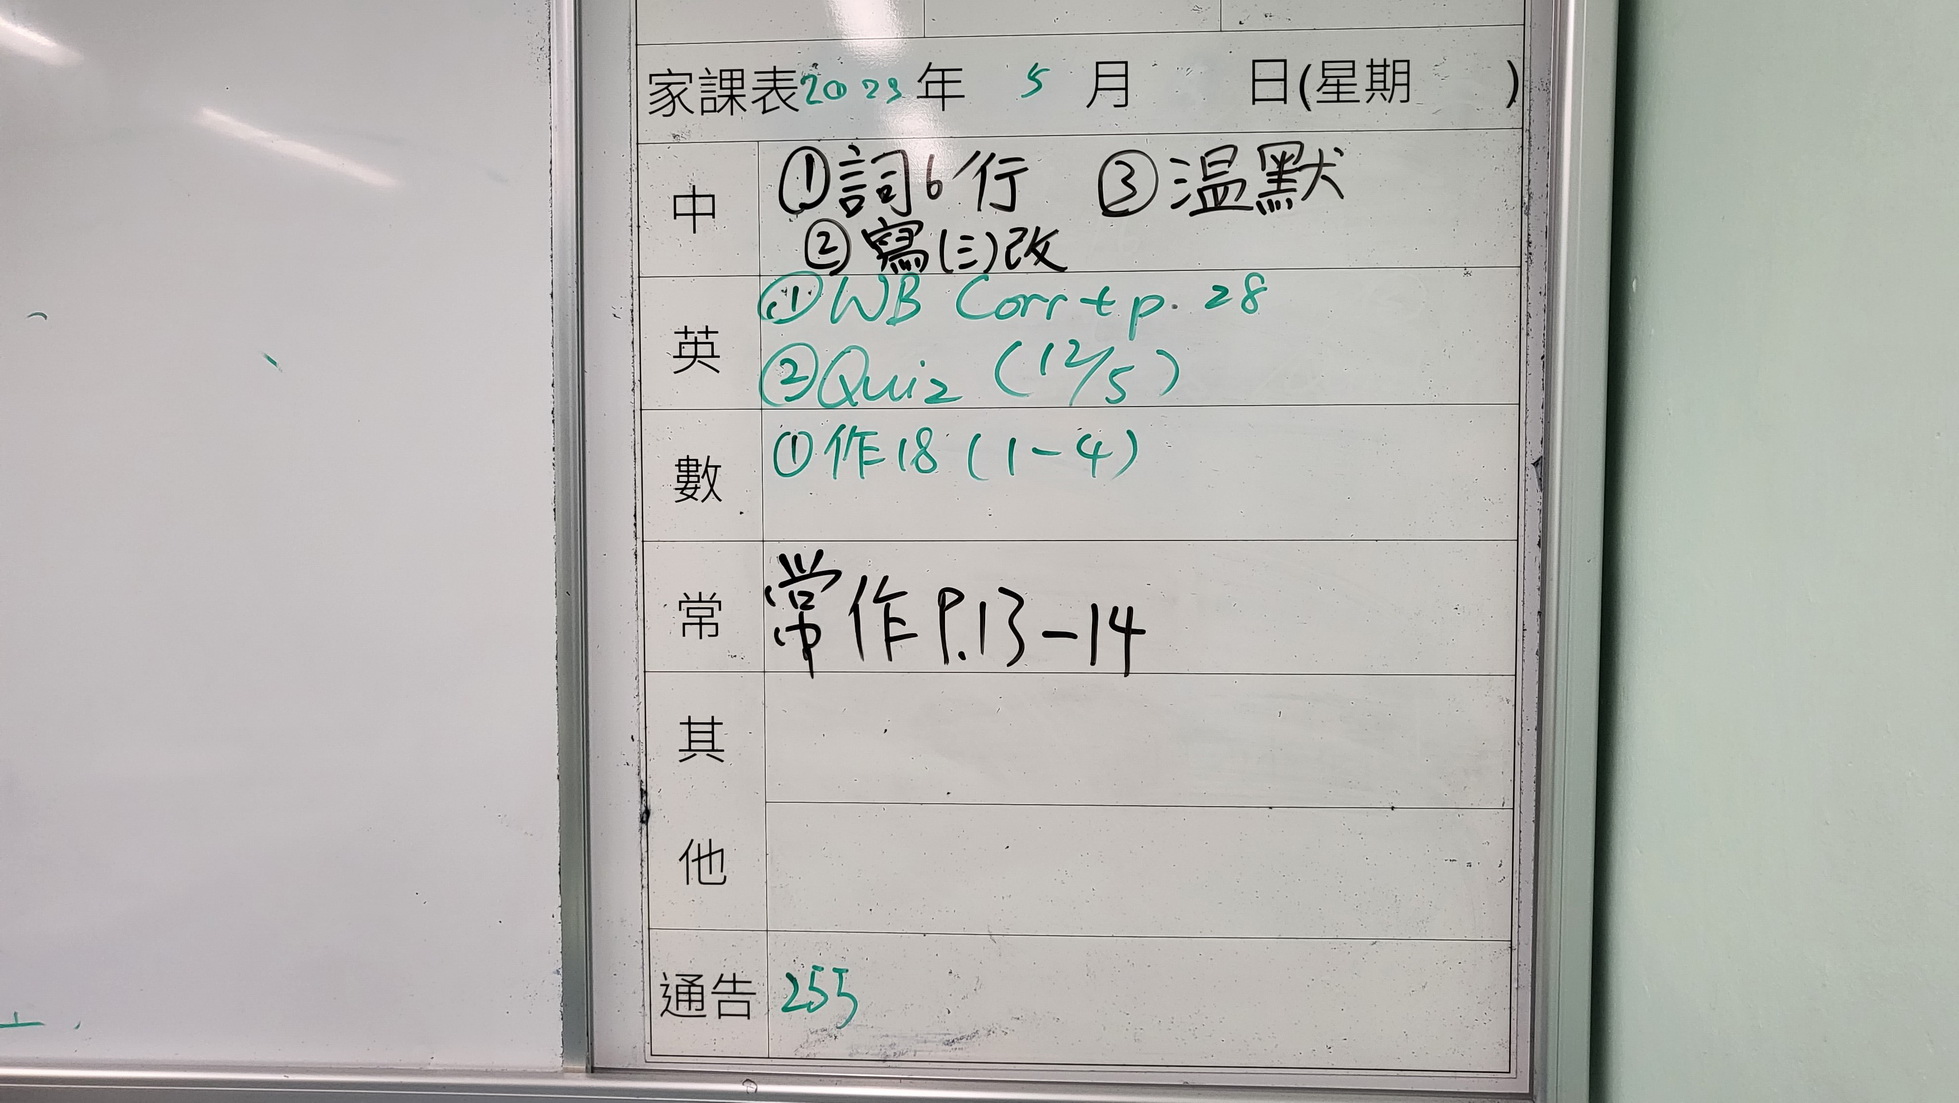 家課表2023年 5 月 日(星期 )
中 ①詞6行 ③温默
②寫(三)改
英 ①WB Corr + p. 28
②Quiz (12/5)
數 ①作18 (1-4)
常 常作P.13-14
其
他
通告 255